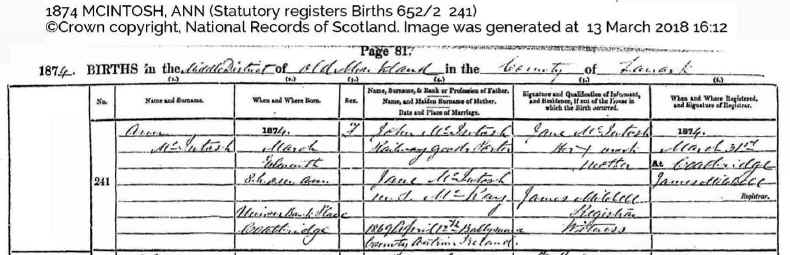 1874 MCINTOSH, ANN (Statutory registers Births 652/2 241)
©Crown copyright, National Records of Scotland. Image was generated at 13 March 2018 16:12
Page 81.
1874. BIRTHS in the Middle District of Old Monkland in the County of Lanark
(1.) (2.) (3.) (4.) (5.) (6.)
No. Name and Surname. When and Where Born. Sex. Name, Surname, & Rank or Profession of Father. Name, and Maiden Surname of Mother. Date and Place of Marriage. Signature and Qualification of Informant, and Residence, if out of the House in which the Birth occurred. When and Where Registered, and Signature of Registrar.
Ann 1874. F John McIntosh Jane McIntosh 1874.
McIntosh March Railway goods Porter Her x mark March 31st
Eleventh Mother At Coatbridge
241 Jane McIntosh James Mitchell
m.s. McKay James Mitchell Registrar.
Bank Place Registrar
Coatbridge 1869 April 12th Ballymena Witness
County Antrim Ireland.